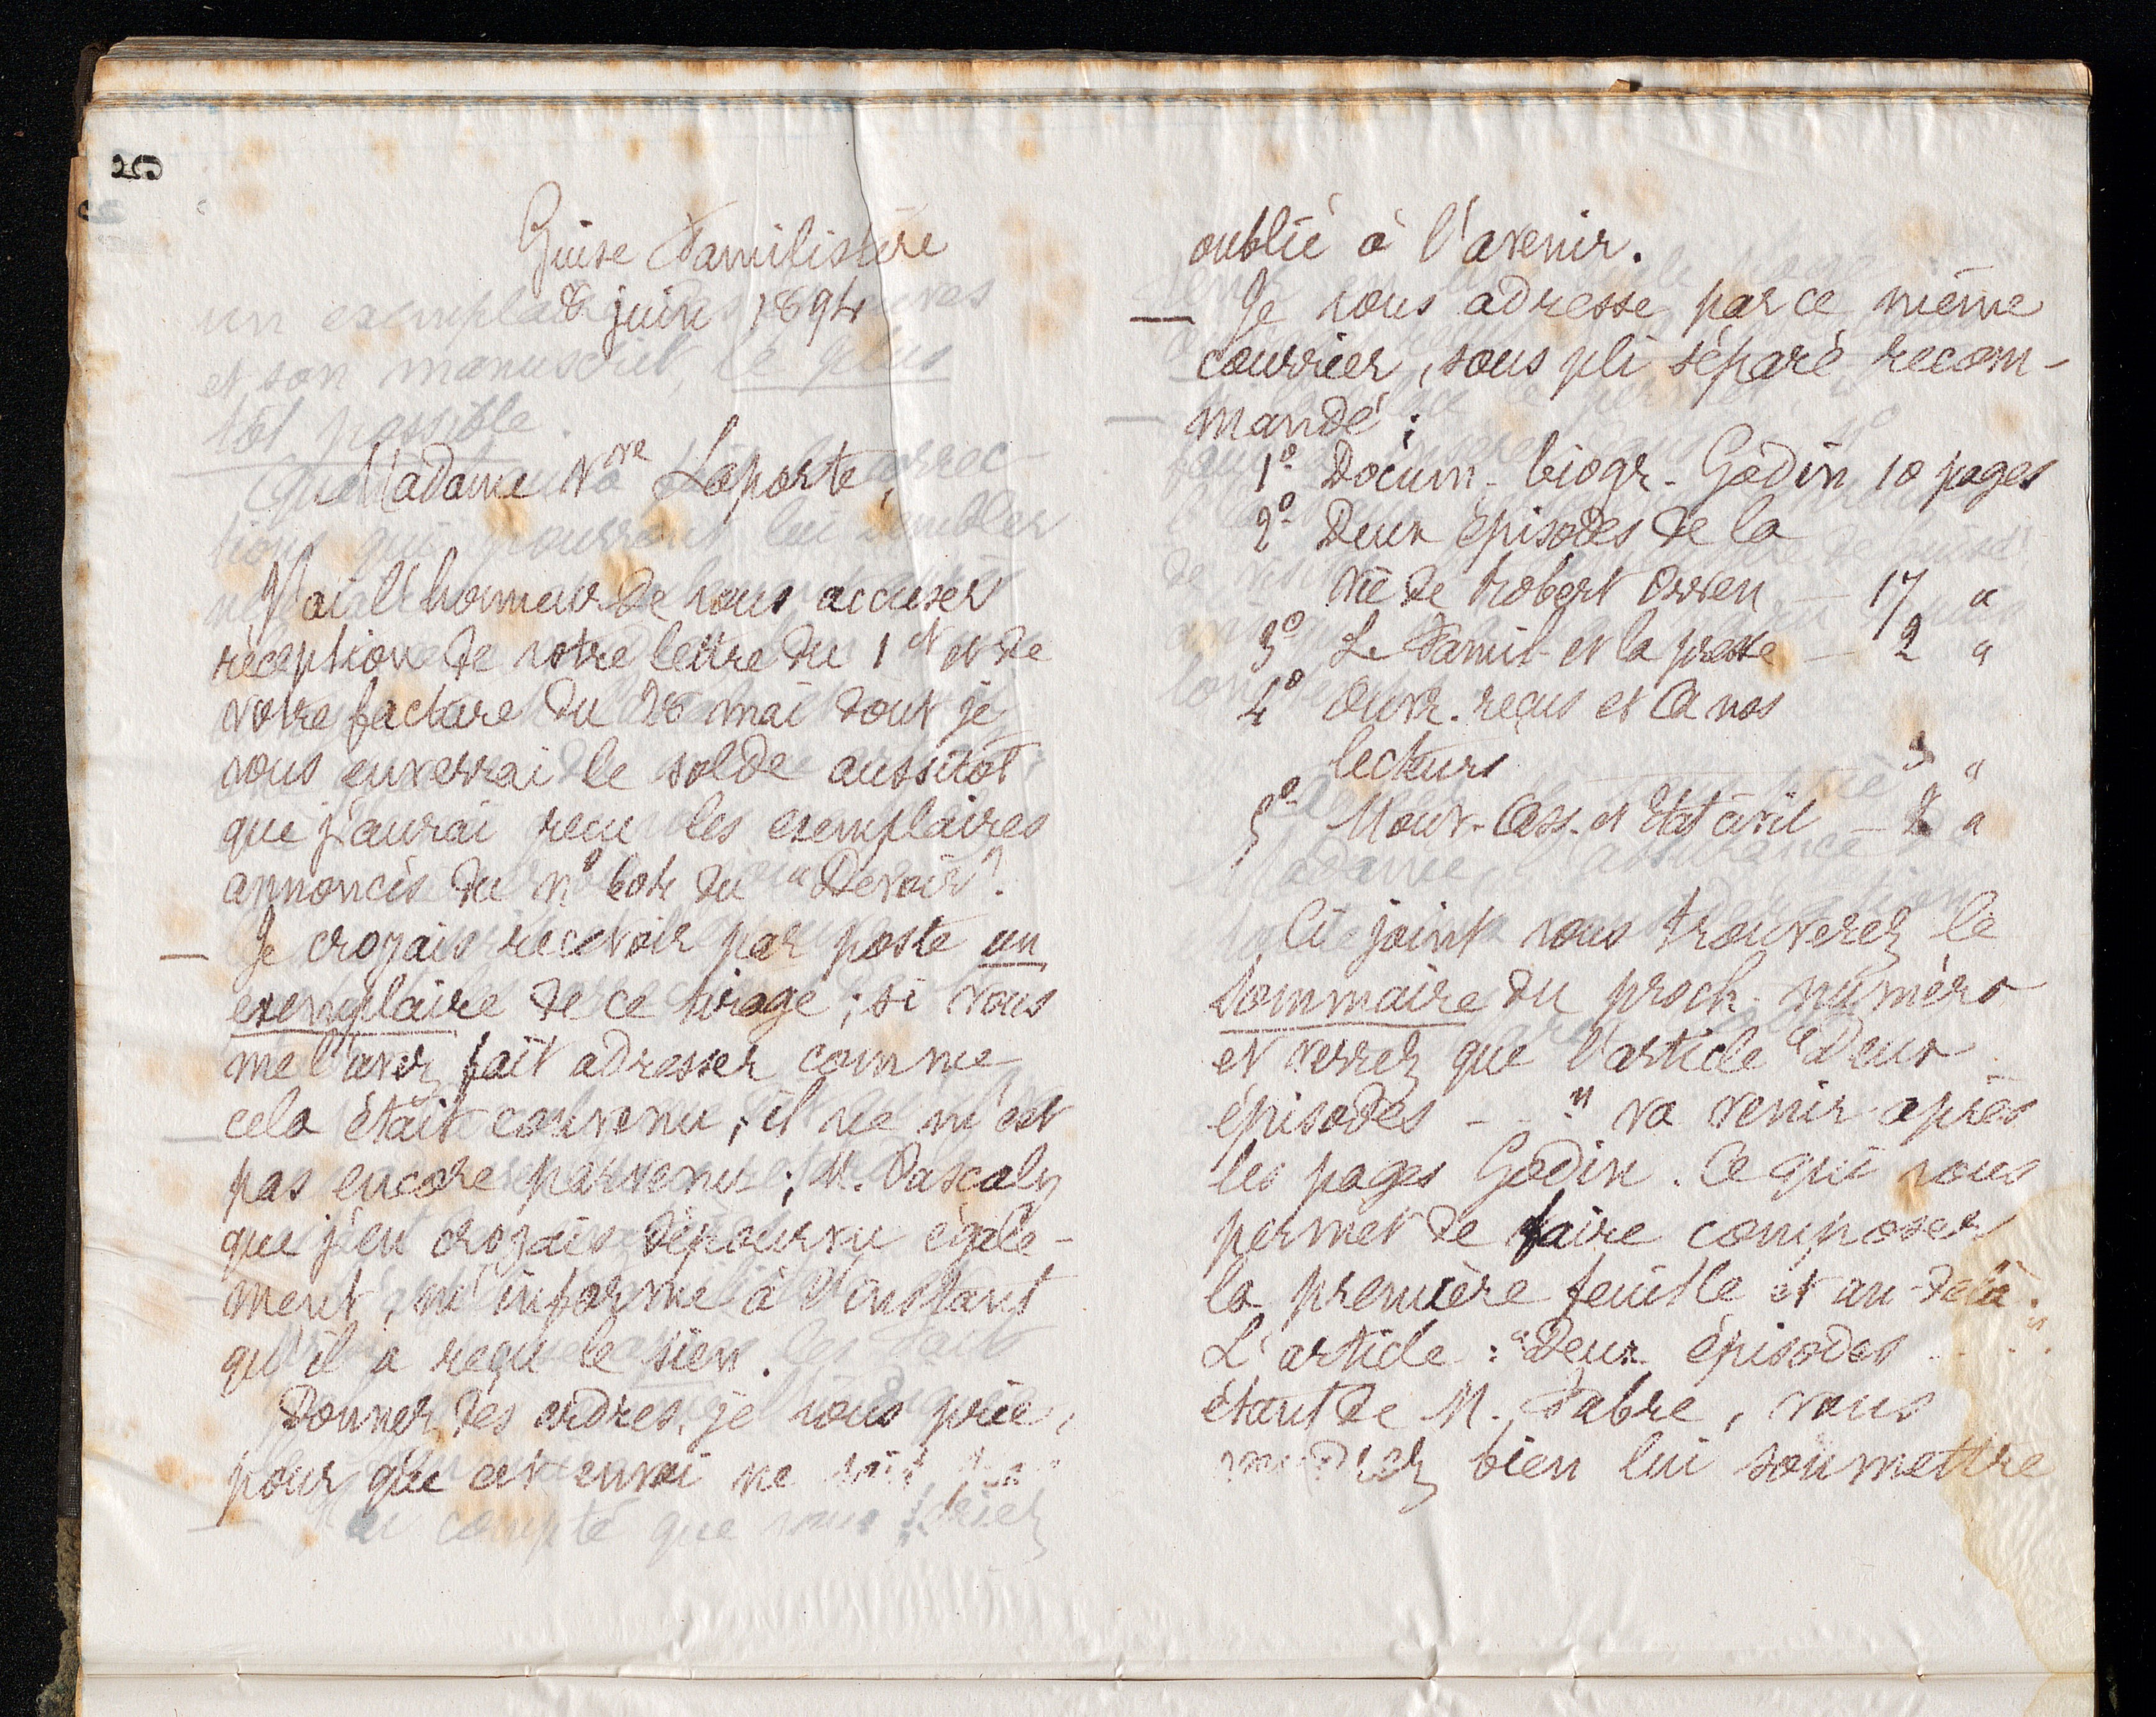 Guise Familistère
8 juin 1894
Madame Vve Laporte,
J'ai l'honneur de vous accuser
réception de votre lettre du 1er et de
votre facture du 28 mai dont je
vous enverrai le solde aussitôt
que j'aurai reçu les exemplaires
annoncés du no du "Devoir".
— Je croyais recevoir par poste un
exemplaire de ce tirage ; si vous
me l'avez fait adresser comme
cela était convenu, il ne m'est
pas encore parvenu ; M. Pascaly
que j'en croyais dépourvu égale-
ment, m'informe à l'instant
qu'il a reçu le sien.
Donnez des ordres, je vous prie,
pour que cet envoi ne soit
oublié à l'avenir.
— Je vous adresse par ce même
courrier, sous pli séparé recom-
mandé :
1o Docum. biogr. Godin 10 pages
2o Deux épisodes de la
vie de Robert Owen — 17 "
3o Le Famil. et la presse — 2 "
4o Ouvr. reçus et A nos
lecteurs "
5o Mouv. Ass. et Etat civil — "
Ci-joint vous trouverez le
sommaire du proch. numéro
et verrez que l'article "Deux
épisodes - - " va venir après
les pages Godin. Ce qui vous
permet de faire composer
la première feuille et au-delà.
L'article : "Deux épisodes . . . "
étant de M. Fabre, vous
voudrez bien lui soumettre